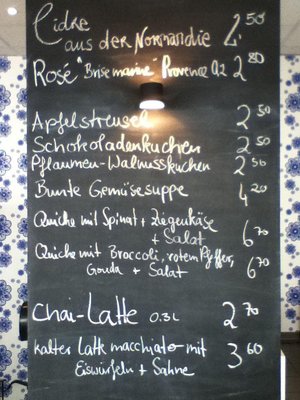 Cidre
aus der Normandie 2.50
Rosé "Brise marine" Provence 0,2 2 80
Apfelstreusel 2 50
Schokoladenkuchen 2 50
Pflaumen-Walnusskuchen 2 50
Bunte Gemüsesuppe 4 20
Quiche mit Spinat + Ziegenkäse
+ Salat 6 70
Quiche mit Broccoli, rotem Pfeffer,
Gouda + Salat 6 70
Chai-Latte 0.3L 2 70
kalter Latte macchiato mit
Eiswürfeln + Sahne 3 60